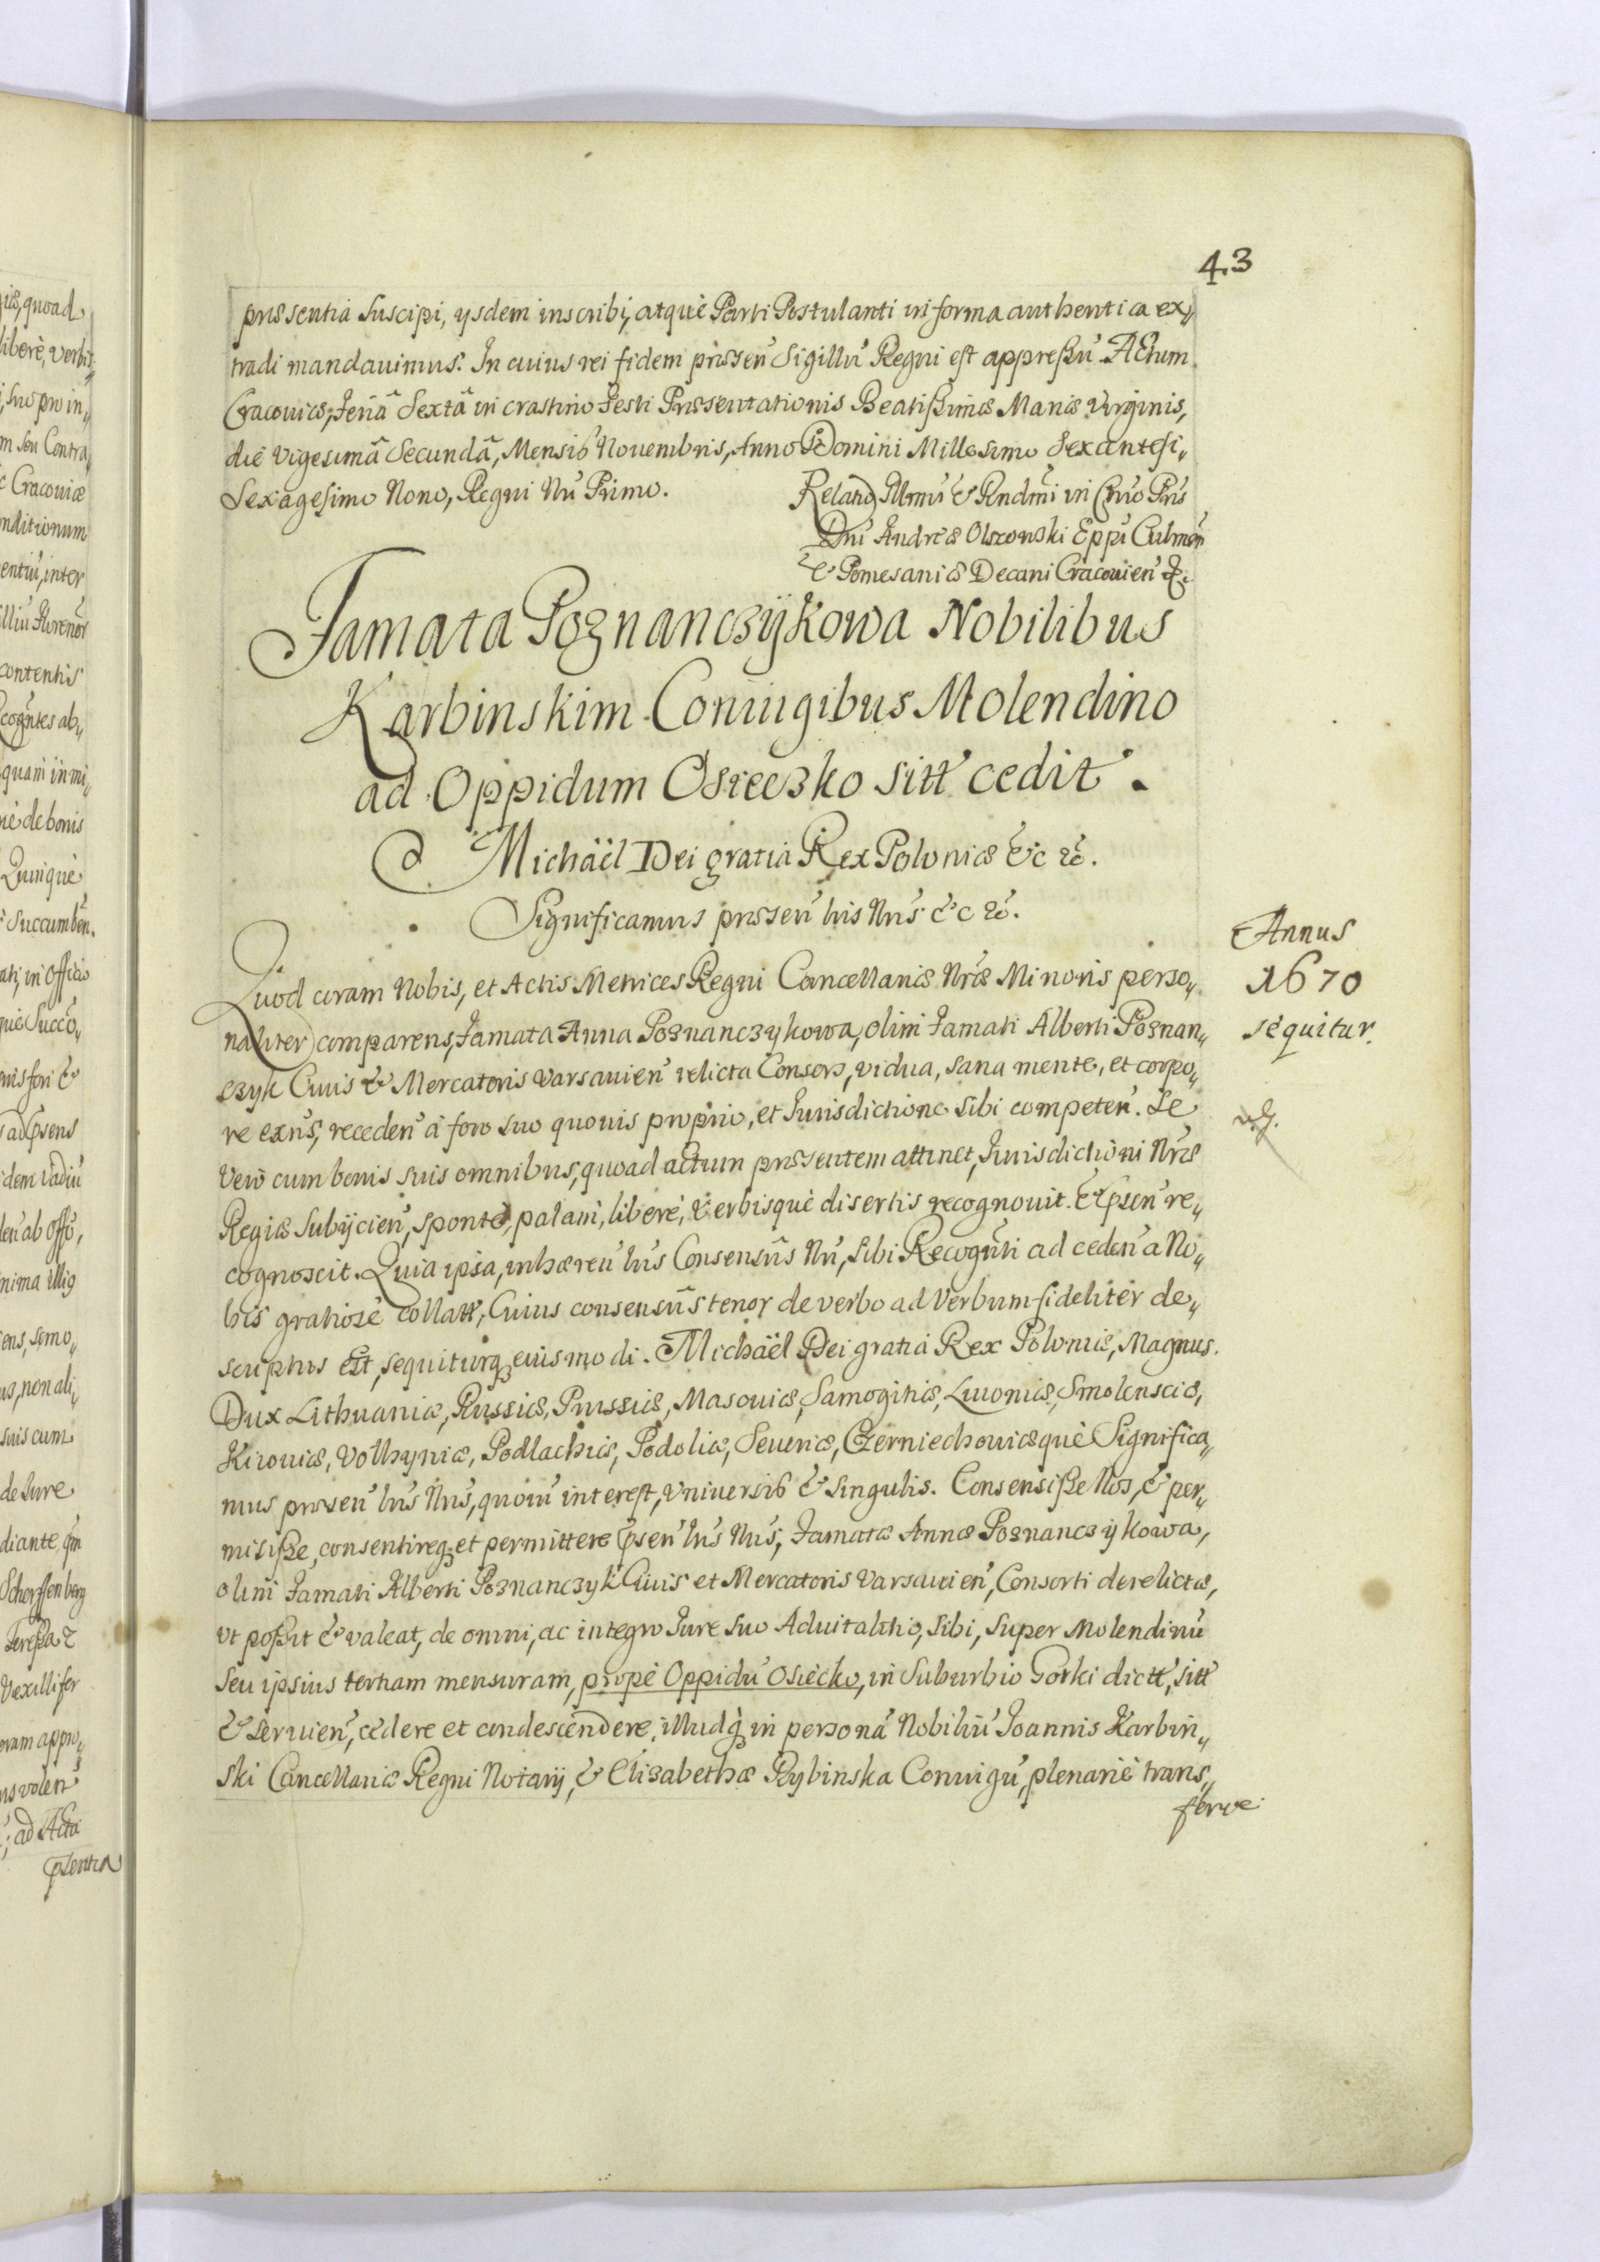 43
præsentia suscipi, ijsdem inscribi, atquè Parti Postulanti in forma authentica ex„
tradi mandauimus. In cuius rei fidem præsen̄ Sigillū Regni est appressū. Actum
Cracouiæ, Feriâ Sextâ in crastino Festi Præsentationis Beatissimæ Mariæ Virginis,
diè Vigesimâ Secundâ, Mensis Nouembris, Anno Domini Millesimo Sexcentesi„
Sexagesimo Nono, Regni Nri Primo.
Relatio Illrmi & Rndmi in Chro Pris
Dni Andreæ Olszowski Eppi Culmen̄
& Pomesaniæ Decani Cracouien̄ &.
Famata Poznanczÿkowa Nobilibus
Karbinskim Coniugibus Molendino
ad Oppidum Osieczko sitt cedit.
Michäel Dei gratia Rex Poloniæ &c &c.
Significamus præsen̄ lris Nris &c &c.
Annus
1670
sequitur.
Quod coram Nobis, et Actis Metrices Regni Cancellariæ Nræ Minoris perso„
naliter comparens, Famata Anna Poznanczykowa, olim Famati Alberti Poznan„
czyk Ciuis & Mercatoris Varsauien̄ relicta Consors, vidua, sana mente, et corpo„
re exns, receden̄ à foro suo quouis proprio, et Iurisdictione sibi competen̄. Se
Verò cum bonis suis omnibus, quoad actum præsentem attinet, Iurisdictioni Nræ
Regiæ subijcien̄, spontè, palam, liberè, Verbisquè disertis recognouit. & Psen̄ re„
cognoscit. Quia ipsa, inhæren̄ lris Consensûs Nri, sibi Recognti ad ceden̄ a No„
bis gratiosè collatt, Cuius consensûs tenor de verbo ad Verbum fidelitèr de„
scriptus est, sequiturq; eiusmodi. Michäel Dei gratia Rex Poloniæ, Magnus
Dux Lithuaniæ, Russiæ, Prussiæ, Masouiæ, Samogitiæ, Liuoniæ, Smolensciæ,
Kiiouiæ, Volhyniæ, Podlachiæ, Podoliæ, Seueriæ, Czerniechouiæquè Significa„
mus præsen̄ lris Nris, quorū interest, Vniuersis & singulis. Consensisse Nos, & per„
misisse, consentireq; et permittere Psen̄ lris Nris, Famatæ Annæ Poznanczÿkowa,
olim Famati Alberti Poznanczyk Ciuis et Mercatoris Varsauien̄, Consorti derelictæ,
vt possit & valeat, de omni, ac integro Iure suo Aduitalitio, sibi, super Molendinū
seu ipsius tertiam mensuram, propè Oppidū Osiecko, in Suburbio Gorki dictt, sitt
& seruien̄, cedere et condescendere, illudq; in personā Nobiliū Joannis Karbin„
ski Cancellariæ Regni Notarij, & Elisabethæ Rybinska Coniugū, plenariè trans„
ferre